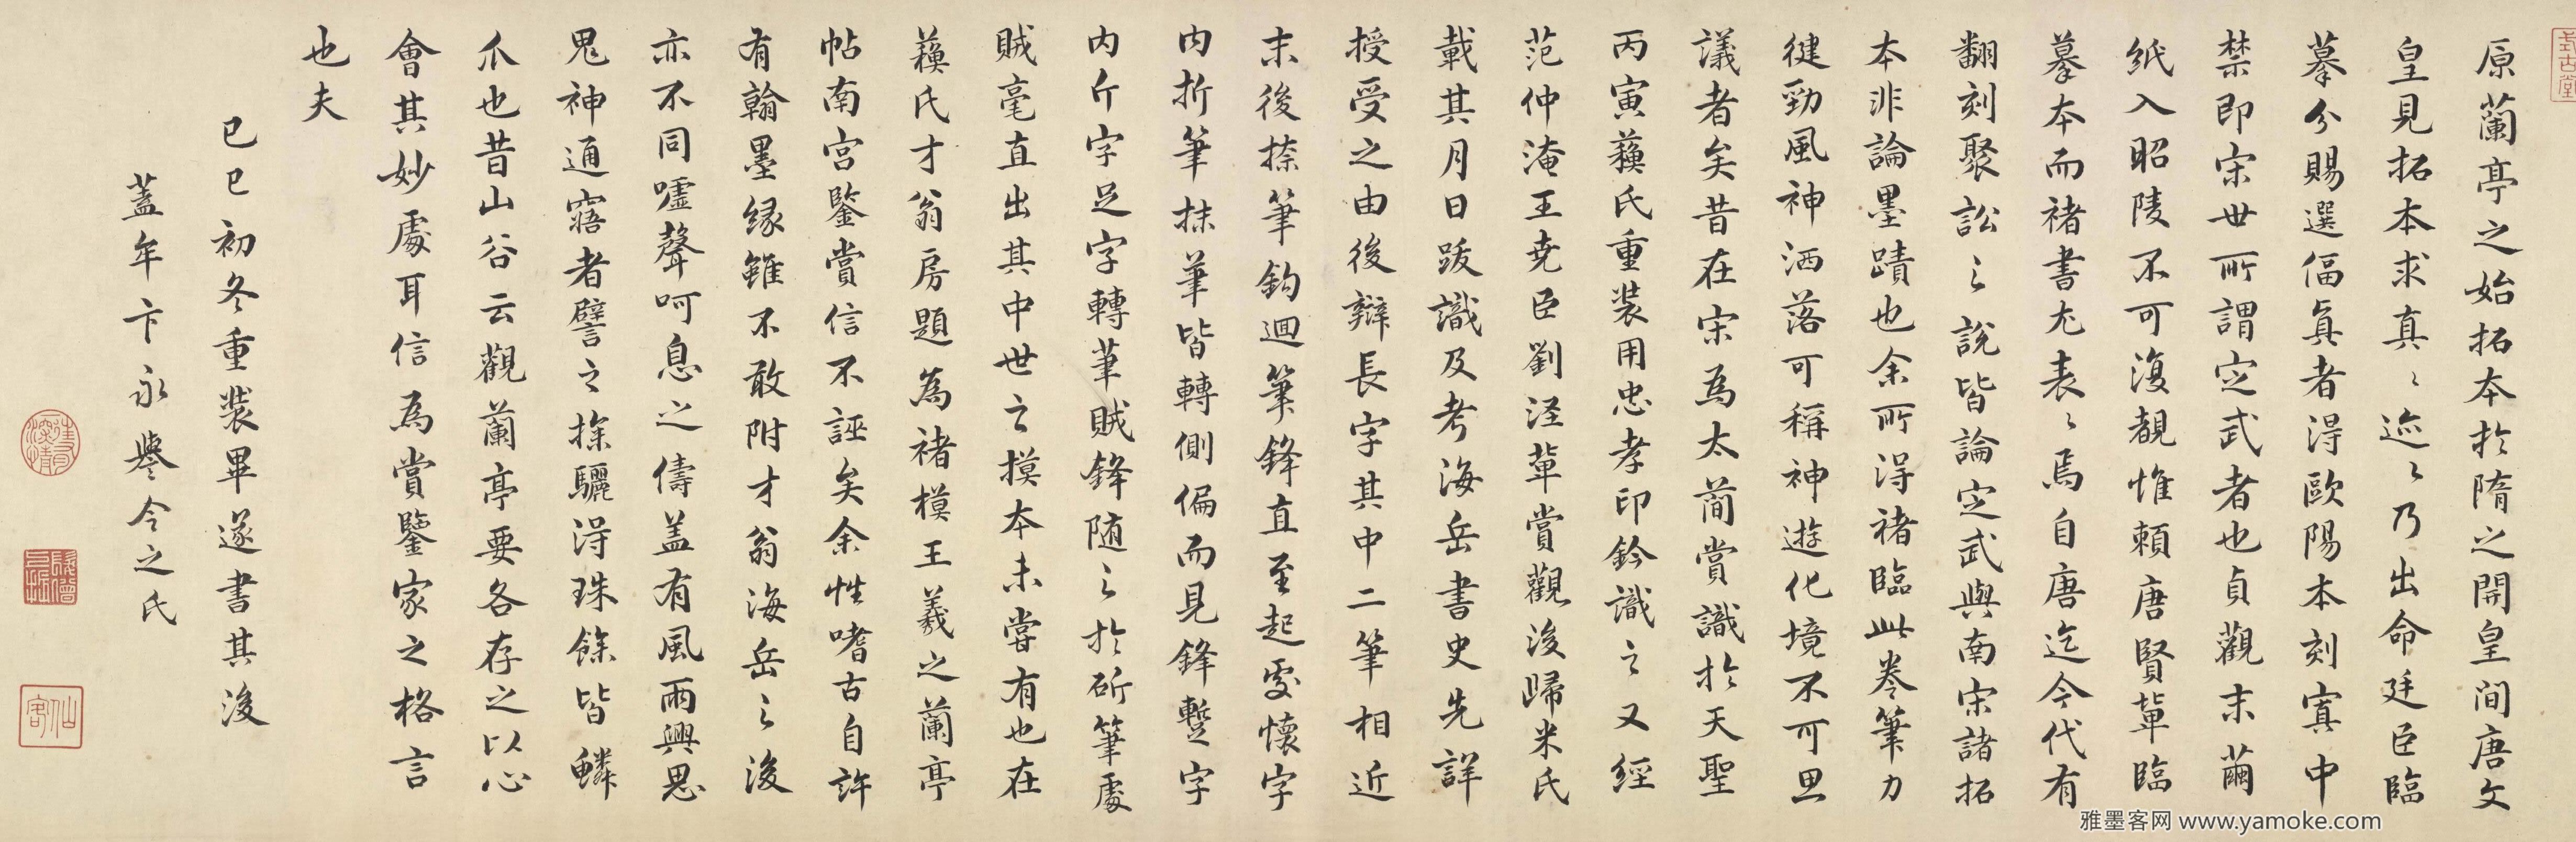 原蘭亭之始拓本於隋之開皇间唐文
皇見拓本求真〻迹〻乃出命廷臣臨
摹分賜選偪真者得歐陽本刻寘中
禁即宋世所謂定武者也貞觀末繭
紙入昭陵不可復覩惟賴唐賢輩臨
摹本而褚書尤表〻焉自唐迄今代有
翻刻聚訟〻說皆論定武與南宋諸拓
本非論墨蹟也余所得褚臨此卷筆力
健勁風神洒落可稱神遊化境不可思
議者矣昔在宋為太簡賞識於天聖
丙寅蘓氏重装用忠孝印鈐識之又經
范仲淹王尭臣劉涇輩賞觀後歸米氏
載其月日跋識及考海岳書史先詳
授受之由後辯長字其中二筆相近
末後捺筆鈎迴筆鋒直至起處懷字
内折筆抹筆皆轉側偏而見鋒蹔字
内斤字足字轉筆賊鋒随之於斫筆處
賊毫直出其中世之摸本未嘗有也在
蘓氏才翁房題為褚模王羲之蘭亭
帖南宫鑒賞信不誣矣余性嗜古自許
有翰墨缘雖不敢附才翁海岳之後
亦不同嘘聲呵息之儔盖有風雨興思
鬼神通寤者譬之探驪得珠餘皆鱗
爪也昔山谷云觀蘭亭要各存之以心
會其妙處耳信為賞鑒家之格言
也夫
己巳初冬重裝畢遂書其後
蓋牟卞永譽令之氏
仙客
式古堂
雅墨客网 www.yamoke.com